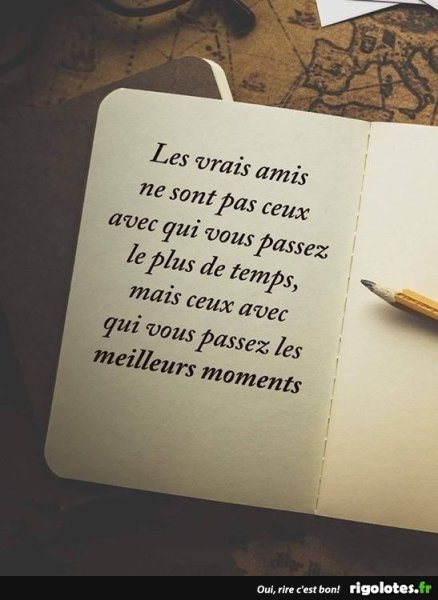 Les vrais amis
ne sont pas ceux
avec qui vous passez
le plus de temps,
mais ceux avec
qui vous passez les
meilleurs moments
Oui, rire c'est bon! rigolotes.fr